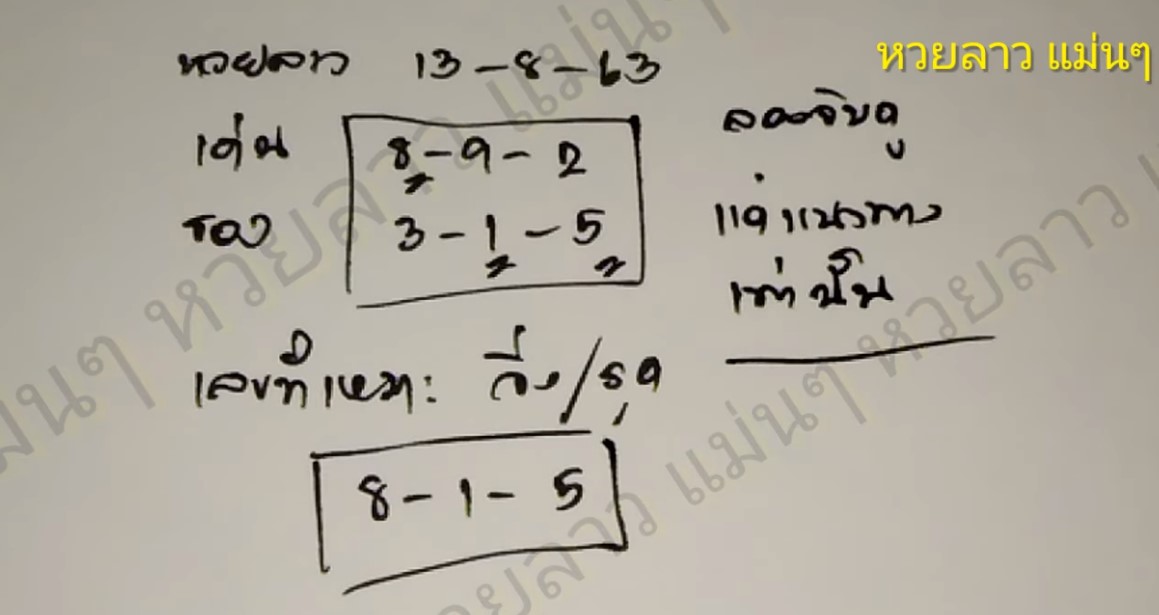 หวยลาว แม่นๆ
หวยลาว 13-8-63
เด่น 8-9-2
รอง 3-1-5
ลองจับดู
แค่แนวทาง
เท่านั้น
เลขที่เหมาะ วิ่ง/รูด
8-1-5
หวยลาว แม่นๆ
หวยลาว แม่นๆ
หวยลาว แม่นๆ